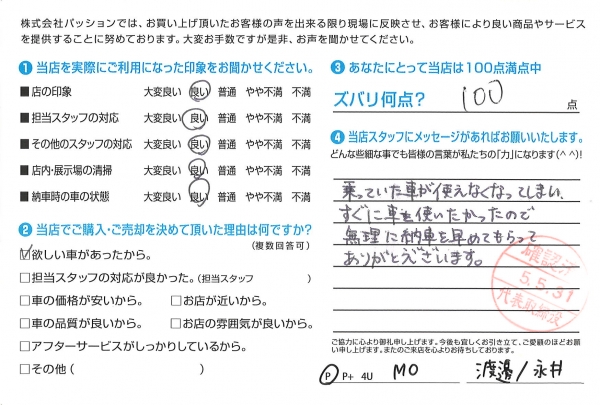 株式会社パッションでは、お買い上げ頂いたお客様の声を出来る限り現場に反映させ、お客様により良い商品やサービス
を提供することに努めております。大変お手数ですが是非、お声を聞かせてください。
① 当店を実際にご利用になった印象をお聞かせください。
■店の印象 大変良い 良い 普通 やや不満 不満
■担当スタッフの対応 大変良い 良い 普通 やや不満 不満
■その他のスタッフの対応 大変良い 良い 普通 やや不満 不満
■店内・展示場の清掃 大変良い 良い 普通 やや不満 不満
■納車時の車の状態 大変良い 良い 普通 やや不満 不満
② 当店でご購入・ご売却を決めて頂いた理由は何ですか?
(複数回答可)
☑欲しい車があったから。
□担当スタッフの対応が良かった。(担当スタッフ )
□車の価格が安いから。 □お店が近いから。
□車の品質が良いから。 □お店の雰囲気が良いから。
□アフターサービスがしっかりしているから。
□その他( )
③ あなたにとって当店は100点満点中
ズバリ何点? 100 点
④ 当店スタッフにメッセージがあればお願いいたします。
どんな些細な事でも皆様の言葉が私たちの「力」になります(^ ^)!
乗っていた車が使えなくなってしまい、
すぐに車を使いたかったので
無理に納車を早めてもらって
ありがとうございます。
確認済
5.5.31
代表取締役
ご協力に心より御礼申し上げます。今後も宜しくお引き立て、ご愛顧のほどお願
い申し上げます。またのご来店を心よりお待ちしております。
P P+ 4U MO 渡邊/永井